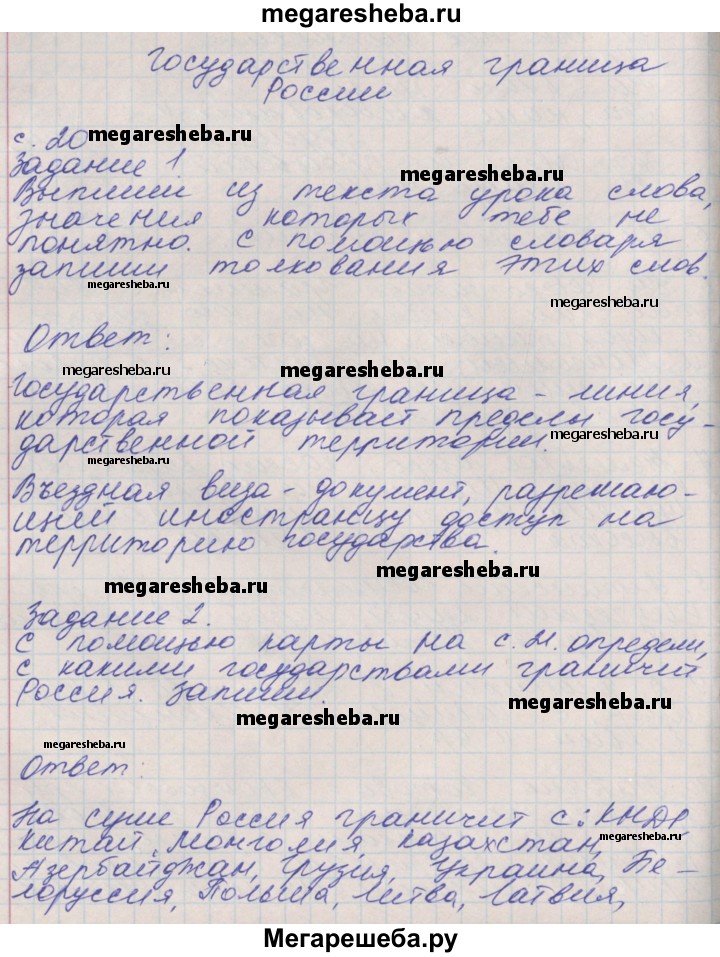 megaresheba.ru
Государственная граница
России
с. 20 megaresheba.ru
Задание 1
megaresheba.ru
Выпиши из текста урока слова,
значения которых тебе не
понятно. С помощью словаря
запиши толкования этих слов.
megaresheba.ru
megaresheba.ru
Ответ:
megaresheba.ru
megaresheba.ru
Государственная граница - линия,
которая показывает пределы госу-
дарственной территории.
megaresheba.ru
megaresheba.ru
Въездная виза - документ, разрешаю-
щий иностранцу доступ на
территорию государства.
megaresheba.ru
megaresheba.ru
Задание 2.
С помощью карты на с. 21. определи,
с какими государствами граничит
Россия. Запиши.
megaresheba.ru
megaresheba.ru
megaresheba.ru
Ответ:
На суше Россия граничит с: КНДР
Китай, Монголия, Казахстан,
megaresheba.ru
Азербайджан, Грузия, Украина, Бе-
лоруссия, Польша, Литва, Латвия,
Мегарешеба.ру